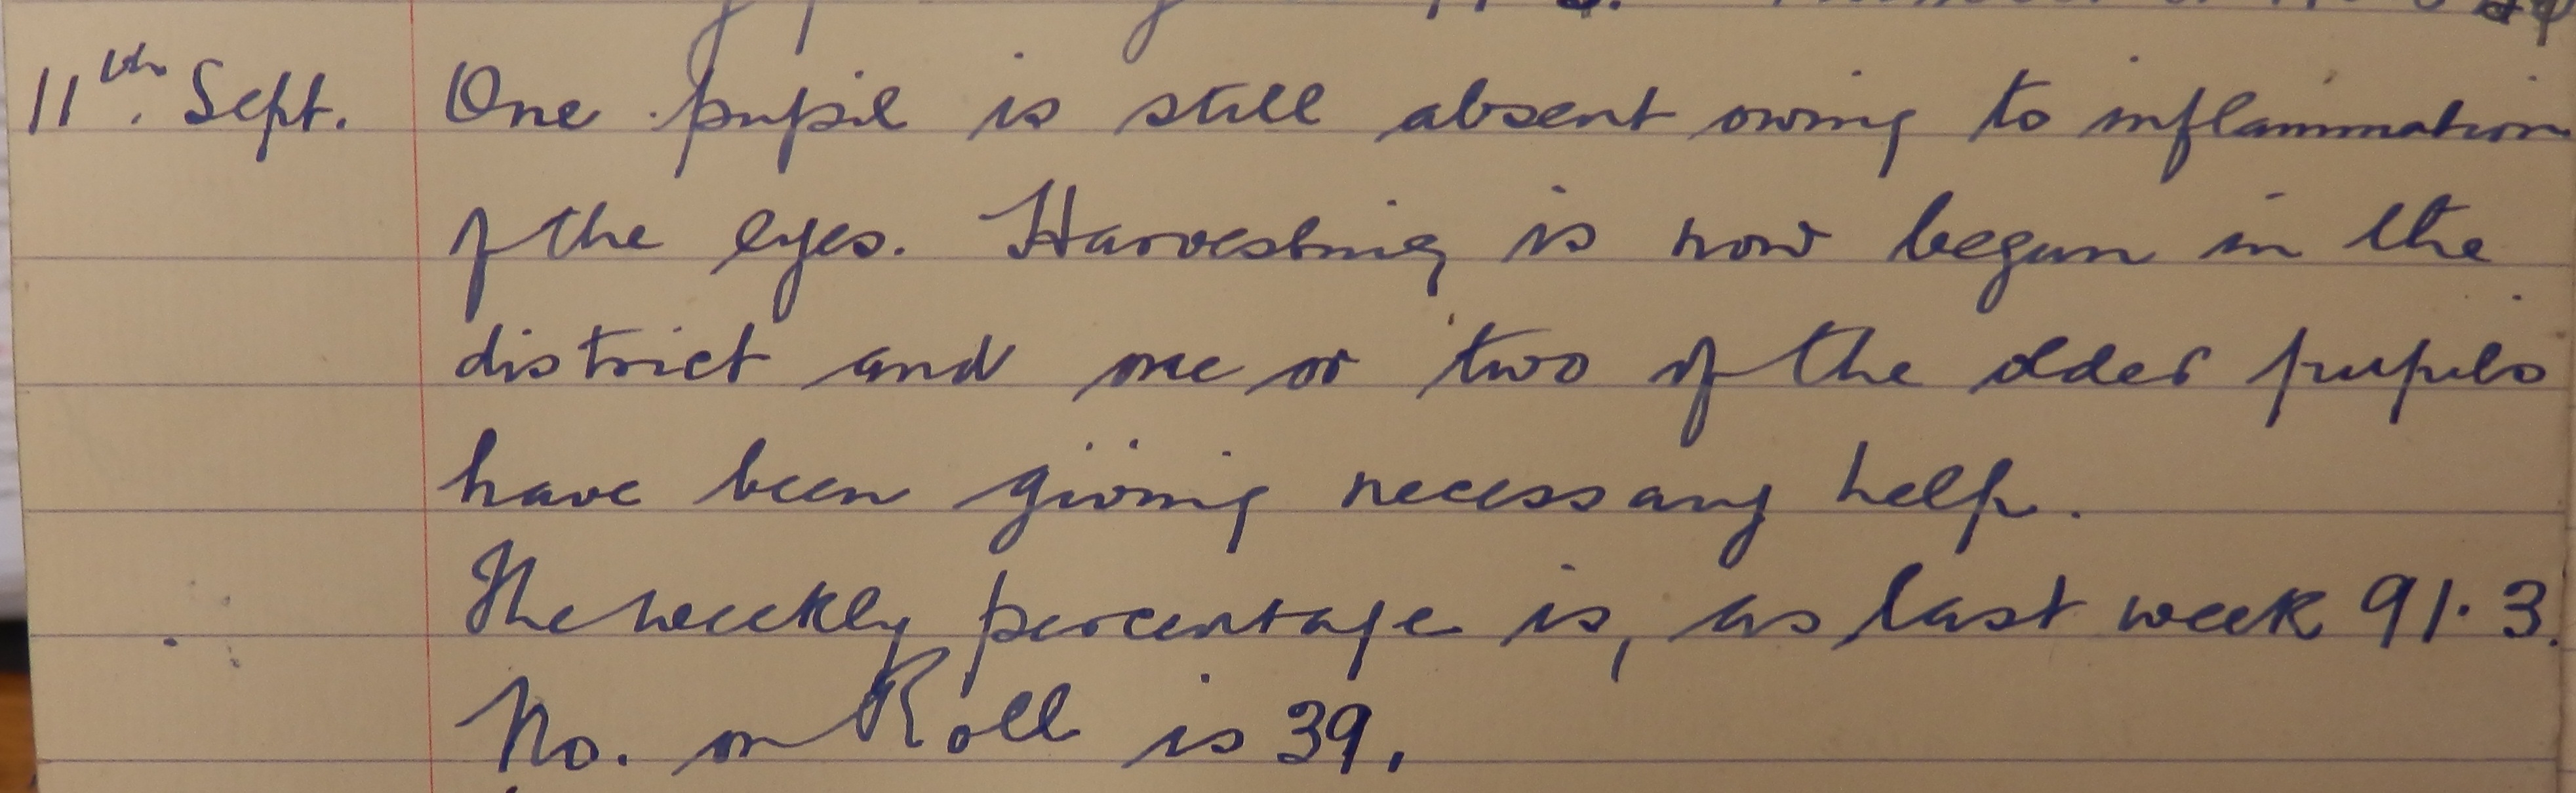 11th. Sept. One pupil is still absent owing to inflammation
of the eyes. Harvesting is now begun in the
district and one or two of the older pupils
have been giving necessary help.
The weekly percentage is, as last week 91.3.
No. on Roll is 39.